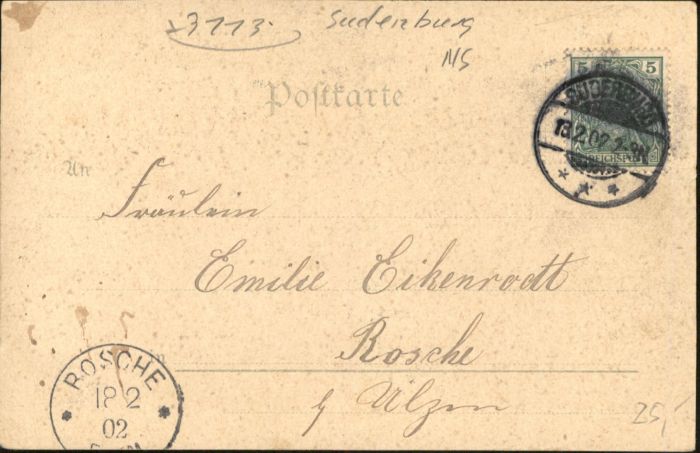 3113. Sudenburg
MS
Postkarte
5 5
SUDENBURG
18.2.02. 2-3N
REICHSPOST
An
Fräulein
Emilie Eikenrodt
Rosche
in
ROSCHE
18 2
02
Ülzen
25,-